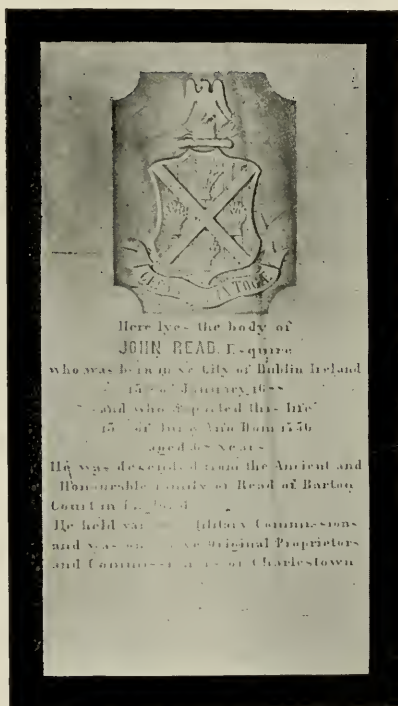 IN TOGA
Here lyes the body of
JOHN READ. Esquire
who was born in ye City of Dublin Ireland
15 of January 1688
and who departed this life
15 of Anno Dom 1756
aged 68 years
He was descended from the Ancient and
Honourable Family of Read of Barton
Court in England
He held Military Commissions
and was ye Original Proprietors
and of Charlestown